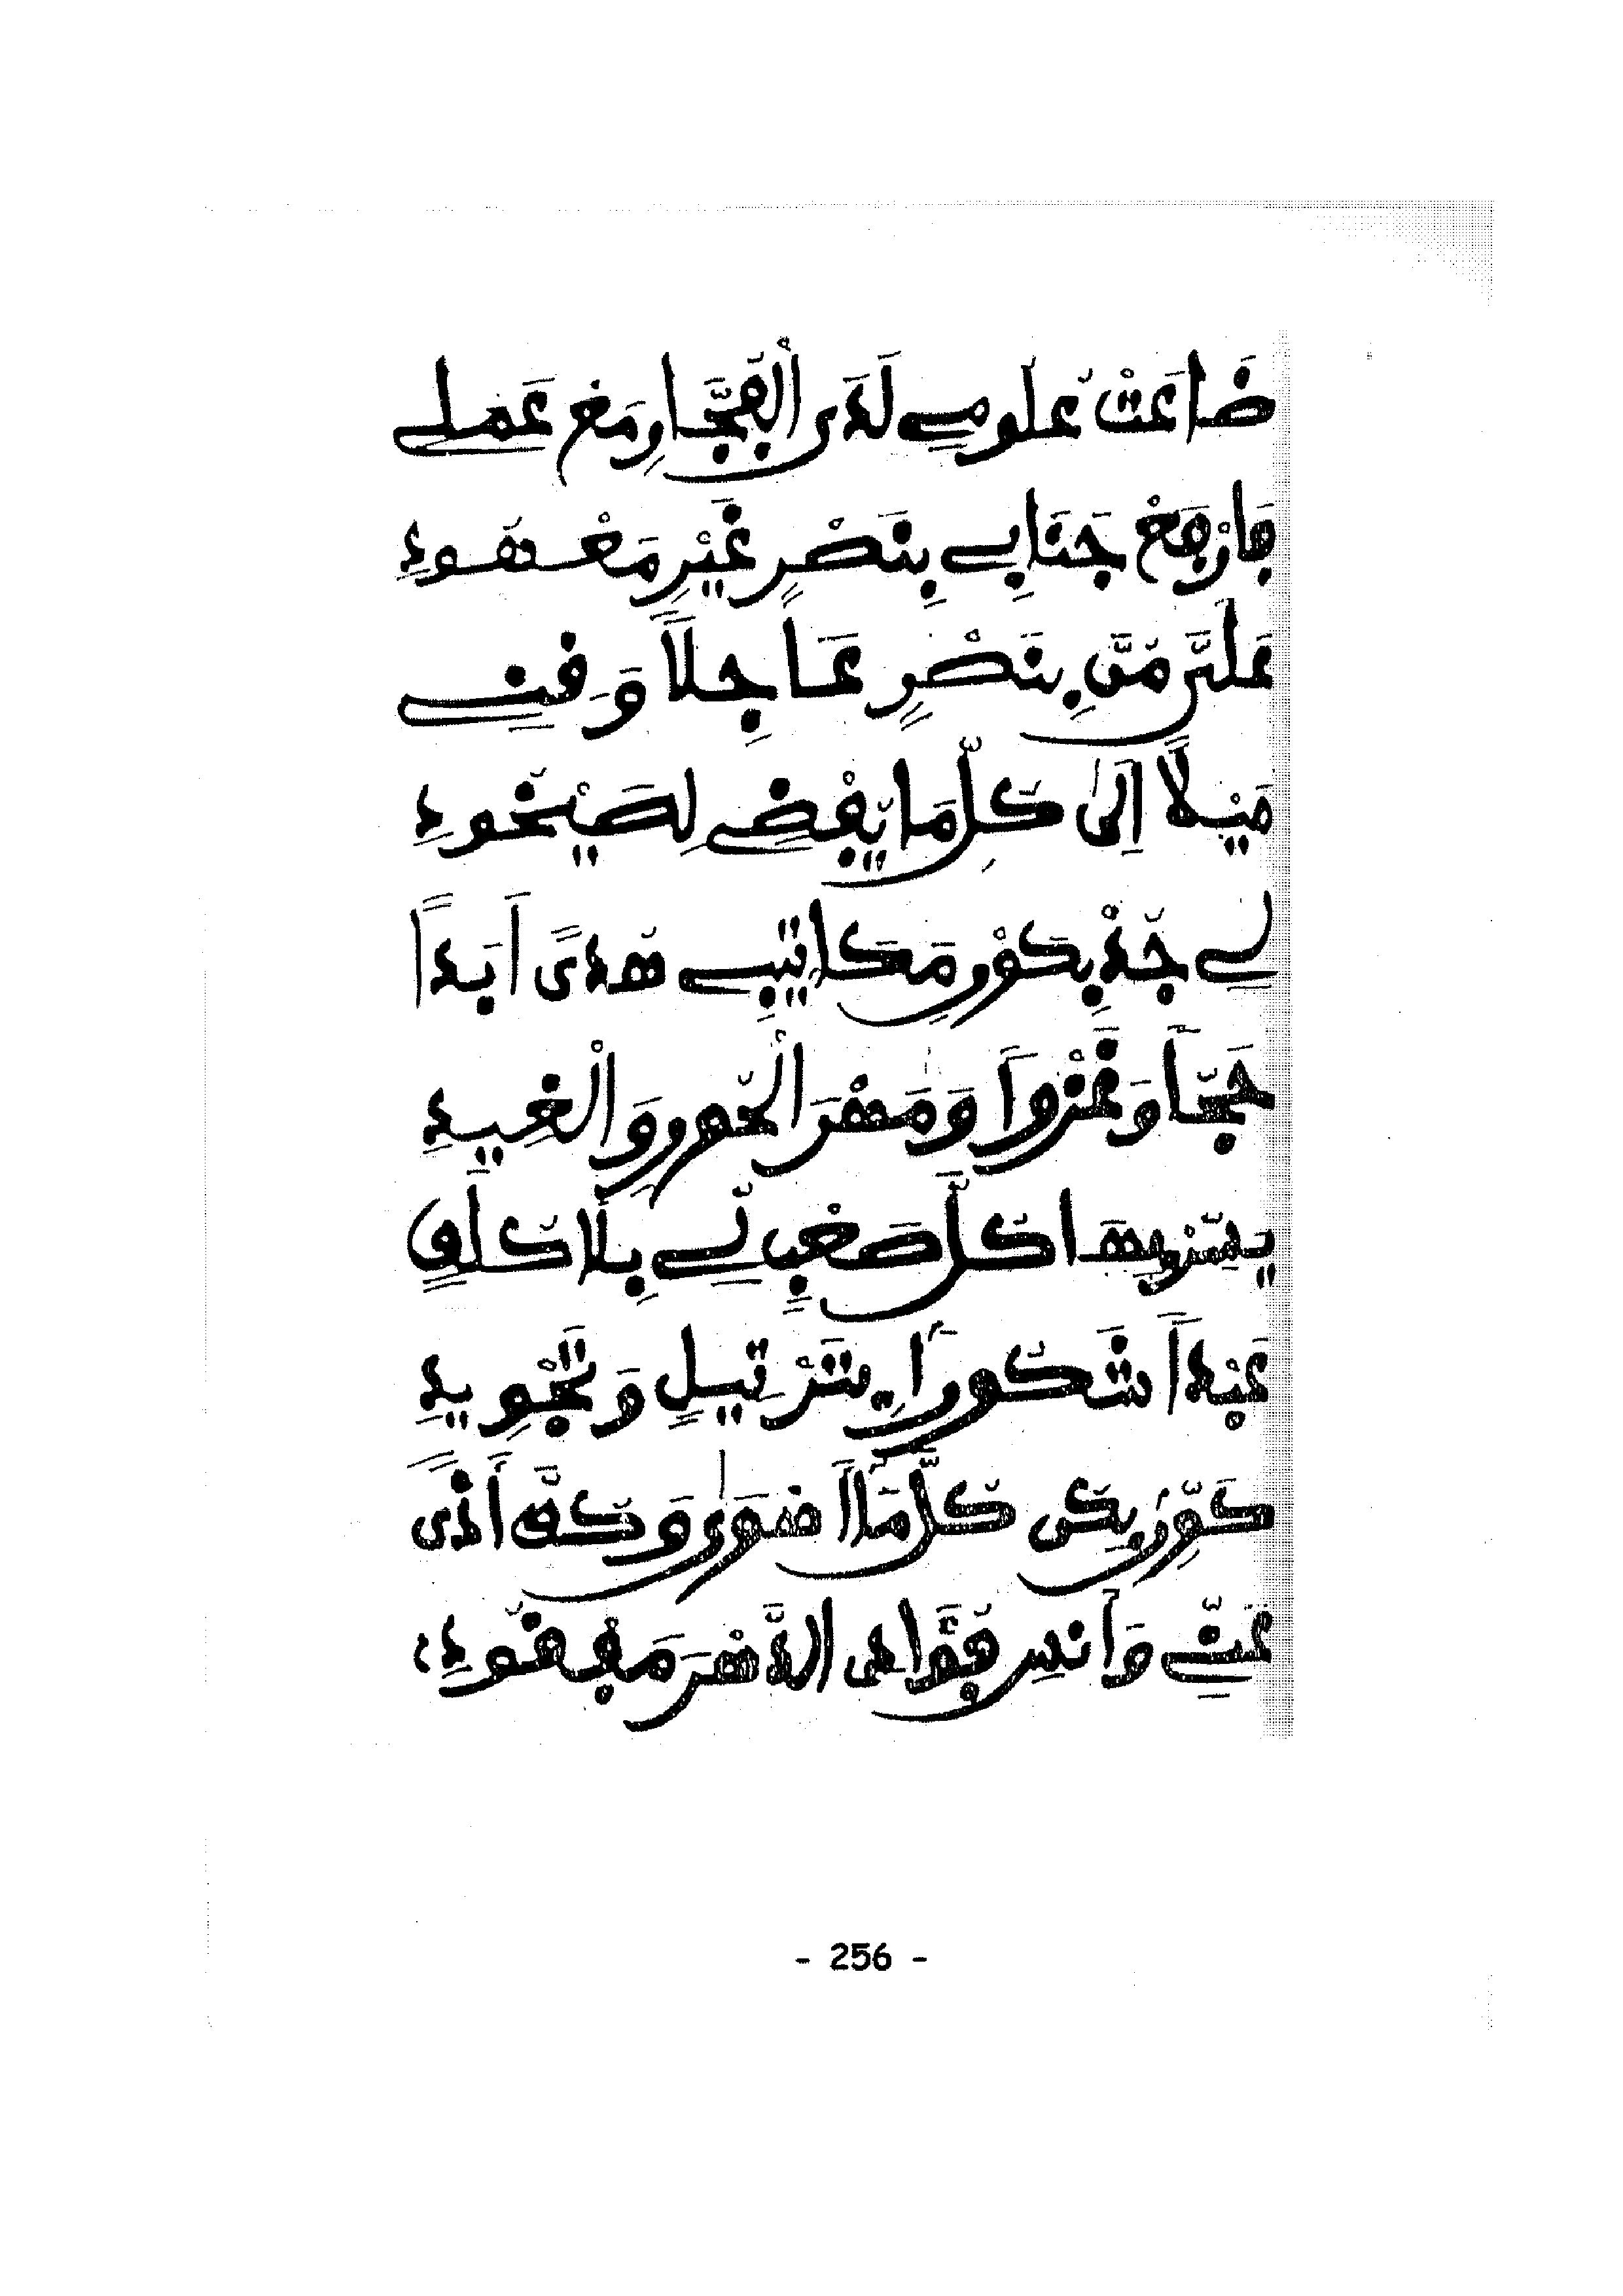 ضَاعَتْ عُلُومِي لَدَى الْفُجَّارِ مَعْ عَمَلِي
فَارْفَعْ جَنَابِي بِنَصْرٍ غَيْرِ مَعْهُودِ
عَلَىَّ مُنَّ بِنَصْرٍ عَاجِلاً وَقِنِي
مَيْلاً اِلَى كُلِّ مَا يُفْضِي لِصَيْخُودِ
لِي جُدْ بِكَوْنِ مَكَاتِيبِي هُدًى اَبَداً
حَجّاً وَغَزْواً وَمَهْرَ الْحُورِ وَالْغِيدِ
كُلَّ صَعْبٍ لِي بِلاَ كُلَفٍ
عَبْداً شَكُوراً بِتَرْتِيلٍ وَتَجْوِيدِ
كَوِّنْ بِكُنْ كُلَّمَا اَهْوَى وَكُفَّ أَذًى
عَنِّي وَأَنْسِ فُؤَادِي الدَّهْرَ مَفْقُودِ،
- 256 -